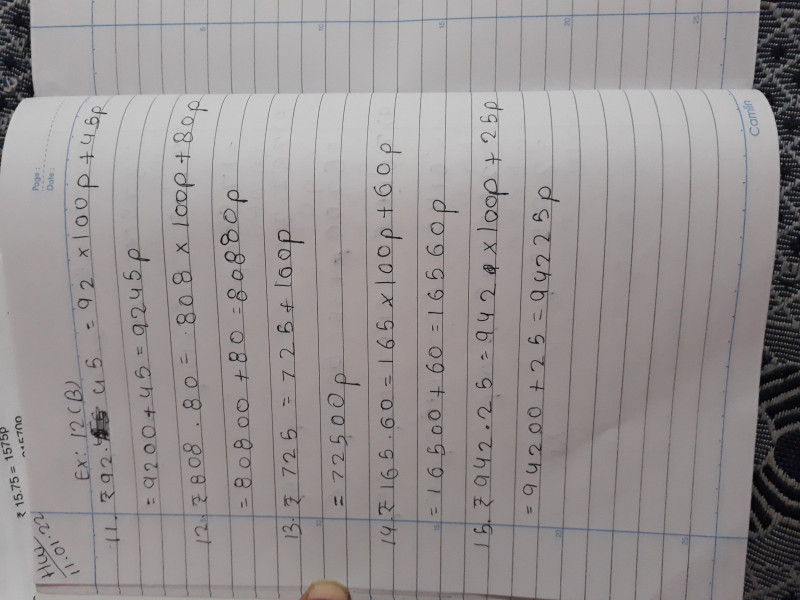 ₹ 15.75 = 1575p
Page:
Date:
H.W
11.01.22
Ex: 12(B)
11. ₹92.45 = 92 x100p+45p
=9200+45=9245p
12. ₹808.80 = 808 x 100p+80p
=80800+80=80880p
13. ₹ 725 = 725+100p
= 72500p
14. ₹165.60=165x100p+60p
=16500+60=16560p
15. ₹942.25=942x100p+25p
=94200+25=94225p
Camlin